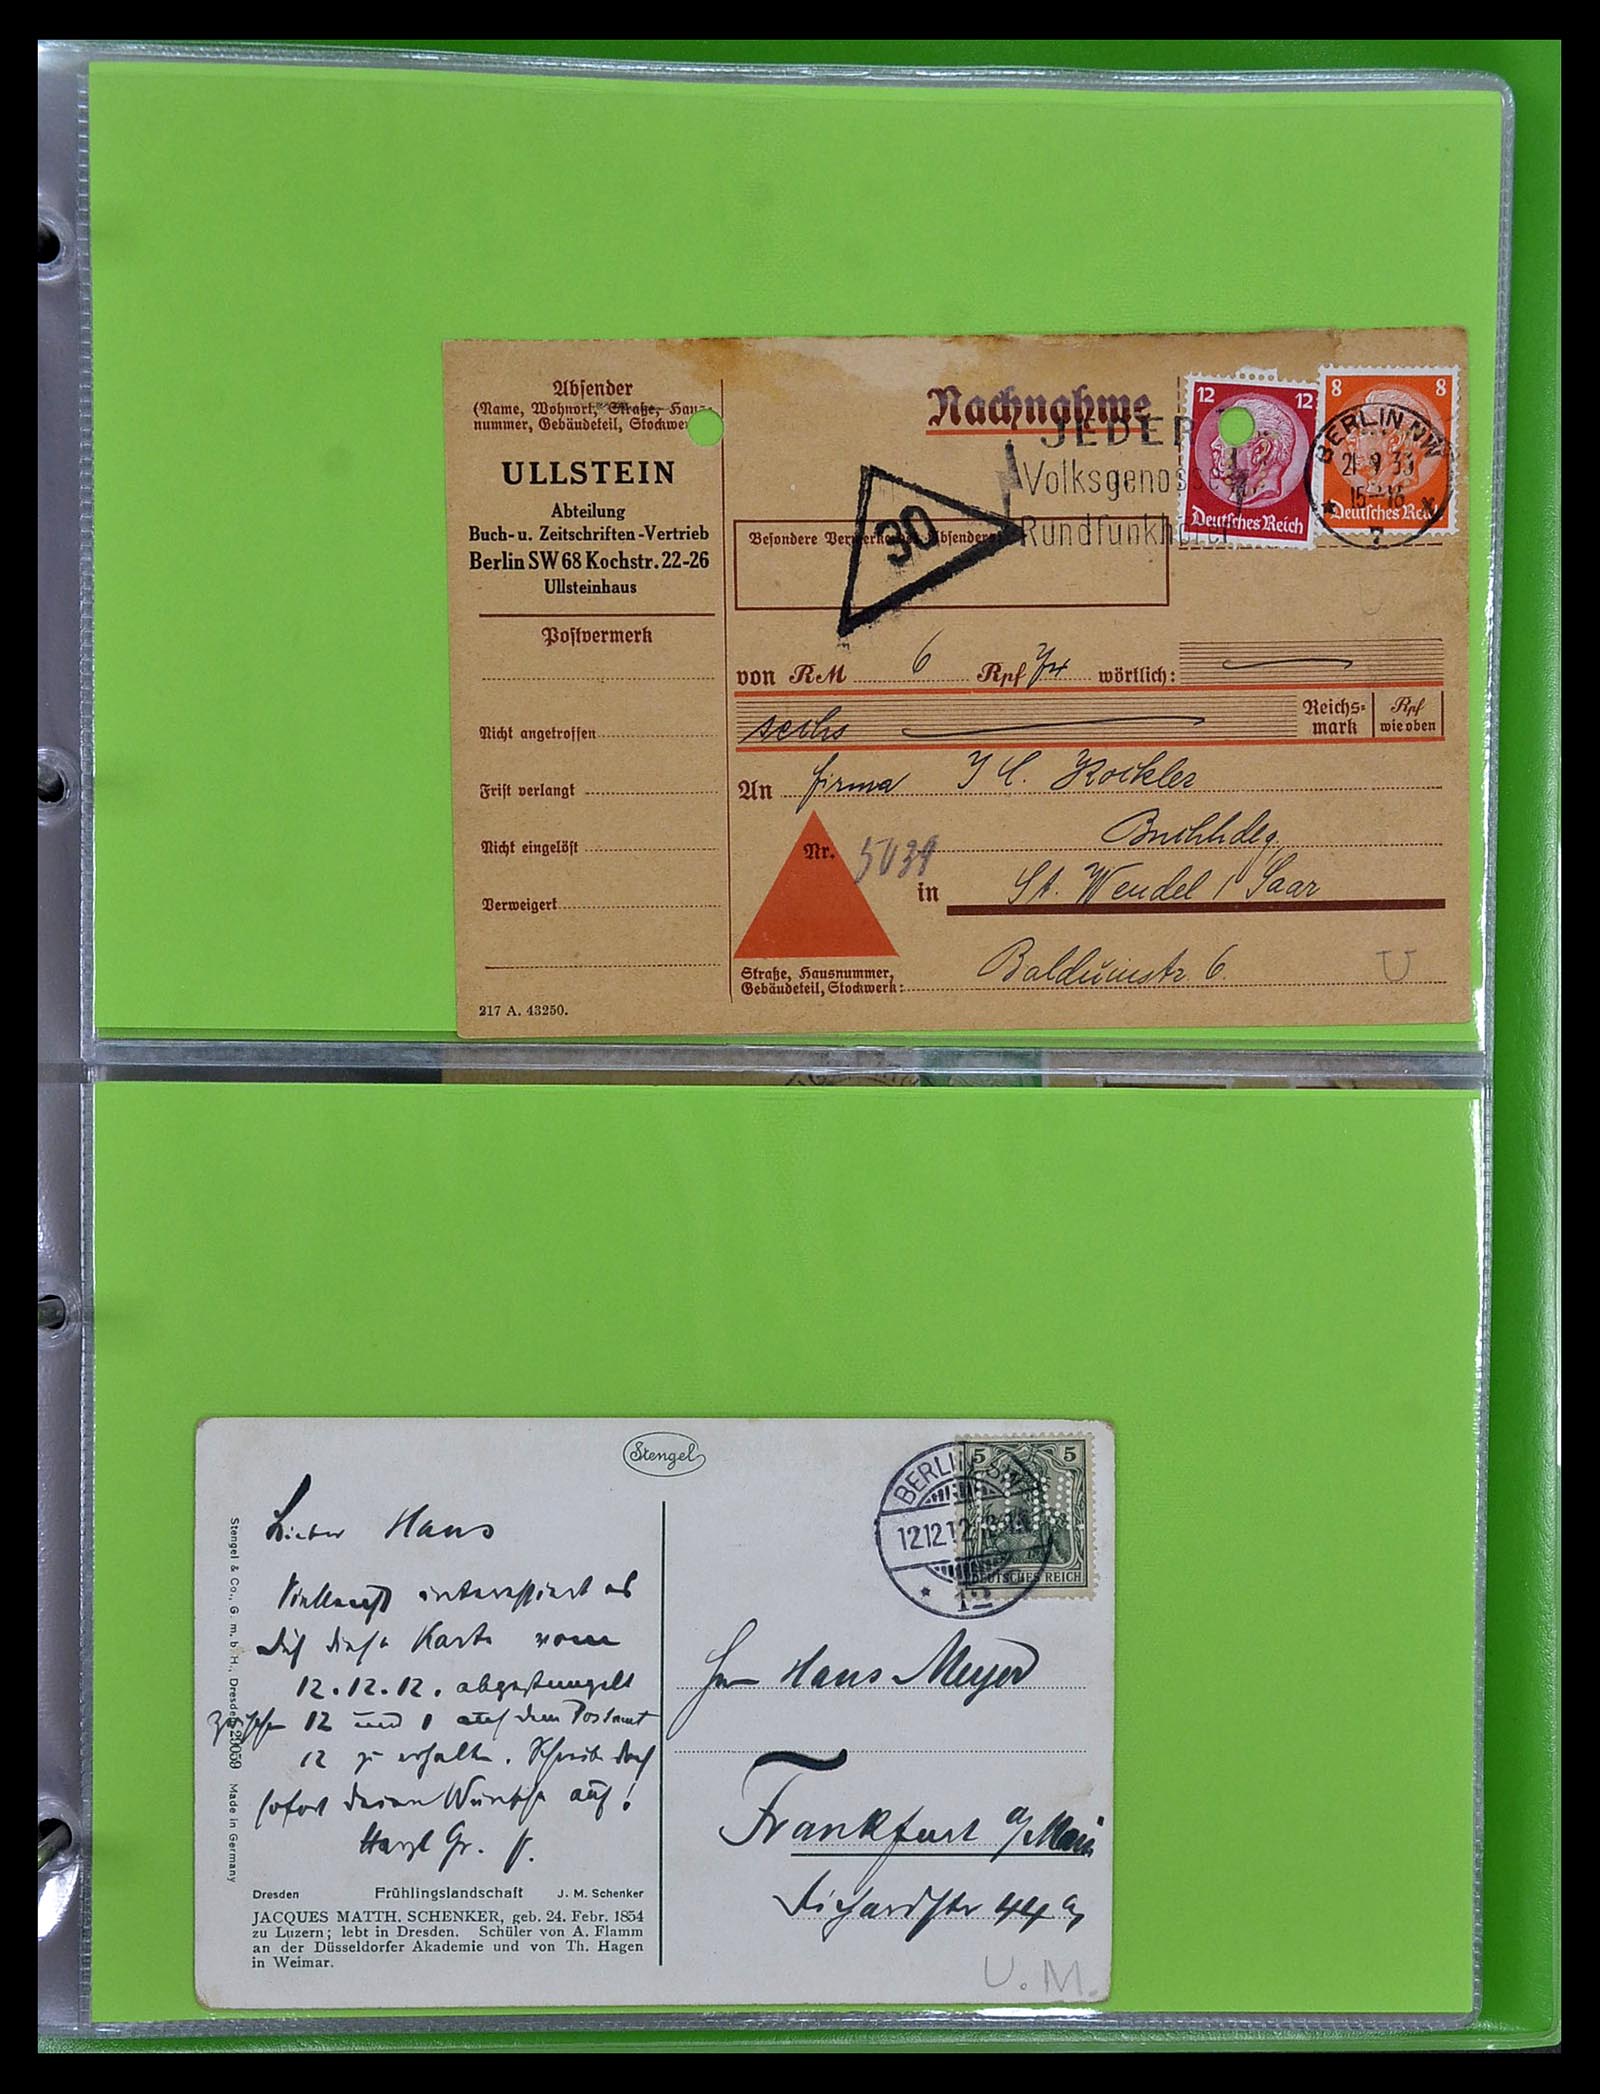 Absender
(Name, Wohnort, Straße, Haus-
nummer, Gebäudeteil, Stockwe
ULLSTEIN
Abteilung
Buch- u. Zeitschriften-Vertrieb
Berlin SW 68 Kochstr. 22-26
Ullsteinhaus
Postvermerk
Nicht angetroffen
Frist verlangt
Nicht eingelöst
Verweigert
217 A. 43250.
Nachnahme
JEDER
Volksgenosse
Rundfunkhörer
12 12
Deutsches Reich
8 8
Deutsches Reich
BERLIN NW
21 9 33
15-16
* 7 *
30
Besondere Vermerke des Absenders:
von RM 6 Rpf wörtlich:
sechs Reichs-mark Rpf wie oben
An Firma
Buchhdlg.
Nr. 5039
in St. Wendel / Saar
Straße, Hausnummer,
Gebäudeteil, Stockwerk: Balduinstr 6
U
Stengel
5 5
DEUTSCHES REICH
BERLIN SW
12.12.12. 12-1
* 12
Lieber Hans
Vielleicht interessiert es
Dich diese Karte vom
12.12.12. abgestempelt
zwischen 12 und 1 auf dem Postamt
12 zu erhalten. Schreibe doch
sofort deine Wünsche auf!
Herzl Gr.
Herrn Hans Meyer
Frankfurt a/Main
Stengel & Co., G. m. b. H., Dresden 29059 Made in Germany
Dresden Frühlingslandschaft J. M. Schenker
JACQUES MATTH. SCHENKER, geb. 24. Febr. 1854
zu Luzern; lebt in Dresden. Schüler von A. Flamm
an der Düsseldorfer Akademie und von Th. Hagen
in Weimar.
U.M.